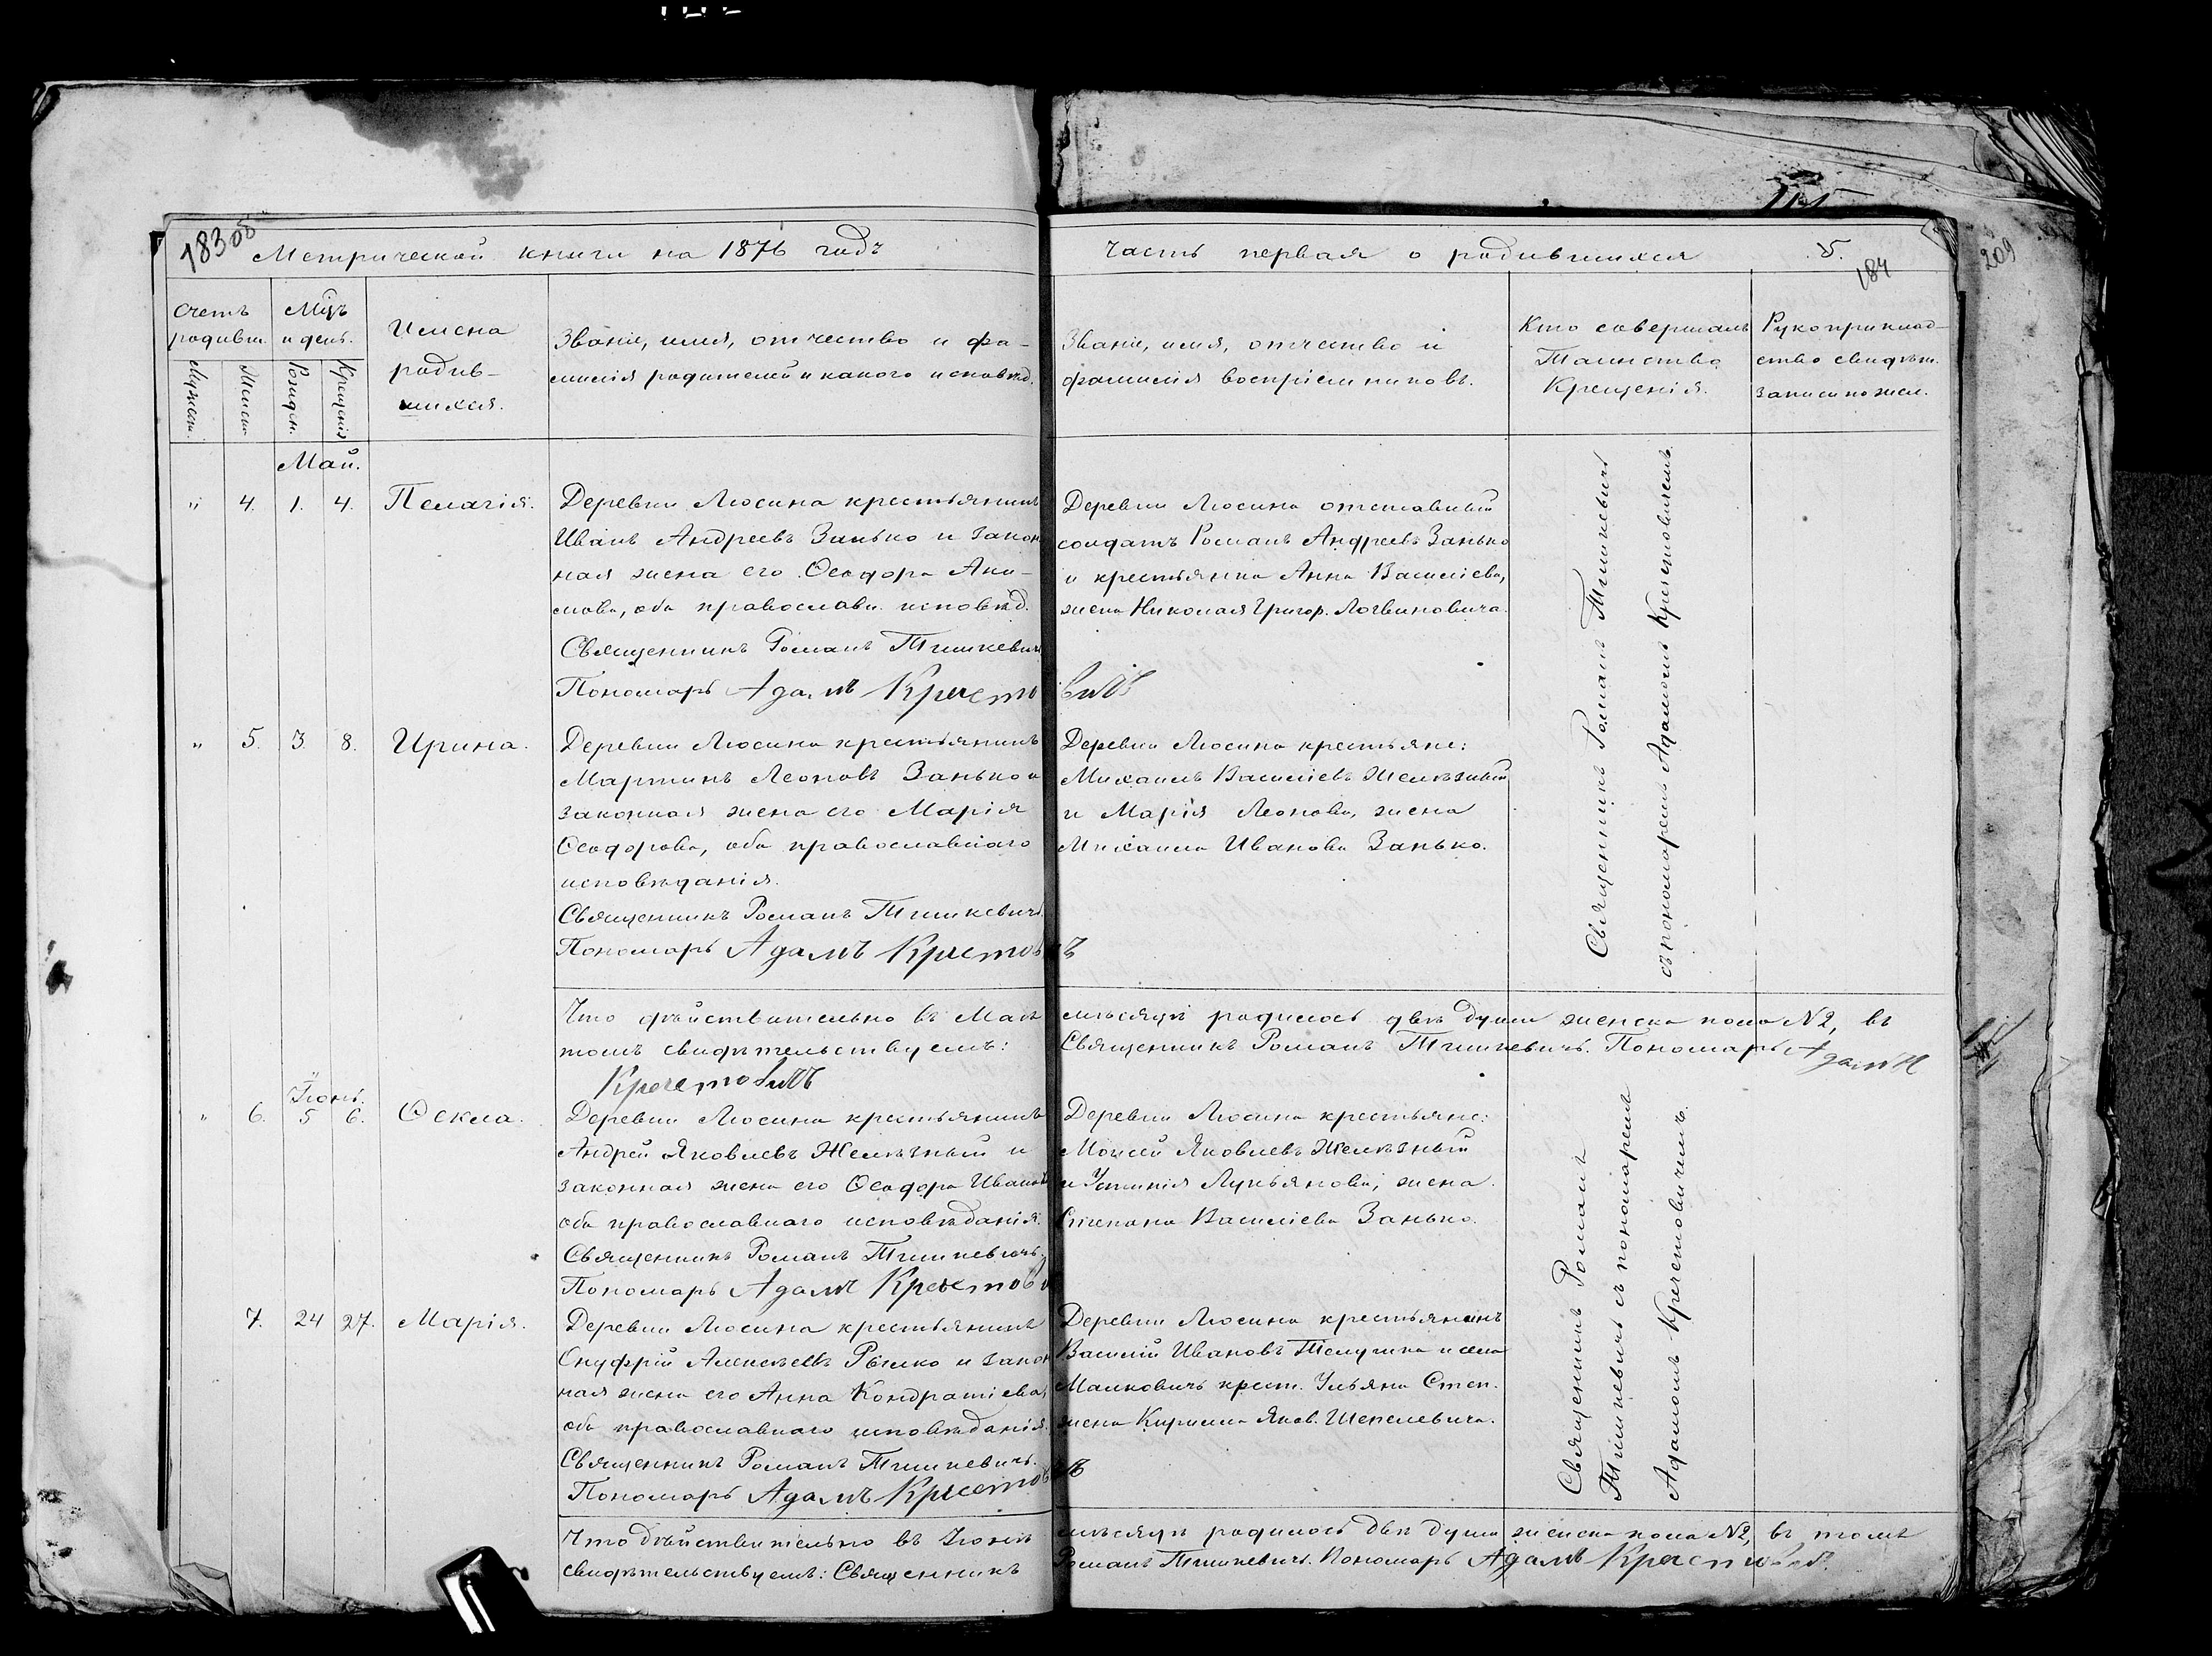 183
Метрической книги на 1876 годъ
часть первая о родившихся
5.
184
209
Счетъ родивш.
Мцъ и день.
Имена родив-
шихся.
Званіе, имя, отчество и фа-
милія родителей и какого исповѣд.
Званіе, имя, отчество и
фамилія воспріемниковъ.
Кто совершалъ
Таинство
Крещенія.
Рукоприклад-
ство свидѣт.
записи по жел.
Мужеск.
Женск.
Рожден.
Крещенія
Май.
" 4. 1. 4. Пелагія.
Деревни Люсина крестьянинъ
Иванъ Андреевъ Занько и закон
ная жена его Ѳеодора Аки-
мова, оба православн. исповѣд.
Священникъ Романъ Тышкевичъ
Пономарь Адамъ Кречетовичъ
Деревни Люсина отставный
солдатъ Романъ Андреевъ Занько
и крестьянка Анна Василіева,
жена Николая Григор. Логвиновича.
Священникъ Романъ Тышкевичъ
съ пономаремъ Адамомъ Кречетовичемъ.
" 5. 3. 8. Ирина.
Деревни Люсина крестьянинъ
Мартинъ Леоновъ Занько и
законная жена его Марія
Ѳеодорова, оба православнаго
исповѣданія.
Священникъ Романъ Тышкевичъ.
Пономарь Адамъ Кречетовичъ
Деревни Люсина крестьяне:
Михаилъ Василіевъ Желѣзный
и Марія Леонова, жена
Михаила Иванова Занько.
Что дѣйствительно въ Маѣ мѣсяцѣ родилось двѣ души женска пола №2, въ
томъ свидѣтельствуемъ: Священникъ Романъ Тышкевичъ. Пономарь Адамъ
Кречетовичъ
Іюнь.
" 6. 5 6. Ѳекла.
Деревни Люсина крестьянинъ
Андрей Яковлевъ Желѣзный и
законная жена его Ѳеодора Иванов
оба православнаго исповѣданія.
Священникъ Романъ Тышкевичъ.
Пономарь Адамъ Кречетович
Деревни Люсина крестьяне:
Моисей Яковлевъ Желѣзный
и Устинія Лукьянова, жена
Стефана Василіева Занько.
Священникъ Романъ
Тышкевичъ съ пономаремъ
Адамомъ Кречетовичемъ.
7. 24 27. Марія.
Деревни Люсина крестьянинъ
Онуфрій Алексѣевъ Рышко и закон
ная жена его Анна Кондратіева,
оба православнаго исповѣданія.
Священникъ Романъ Тышкевичъ.
Пономарь Адамъ Кречетовичъ
Деревни Люсина крестьянинъ
Василій Ивановъ Телушка и села
Малковичъ крест. Ульяна Степ.
жена Кирилла Яков. Шепелевича.
Что дѣйствительно въ Іюнѣ мѣсяцѣ родилось двѣ души женска пола №2, въ томъ
свидѣтельствуемъ: Священникъ Романъ Тышкевичъ. Пономарь Адамъ Кречетовичъ.